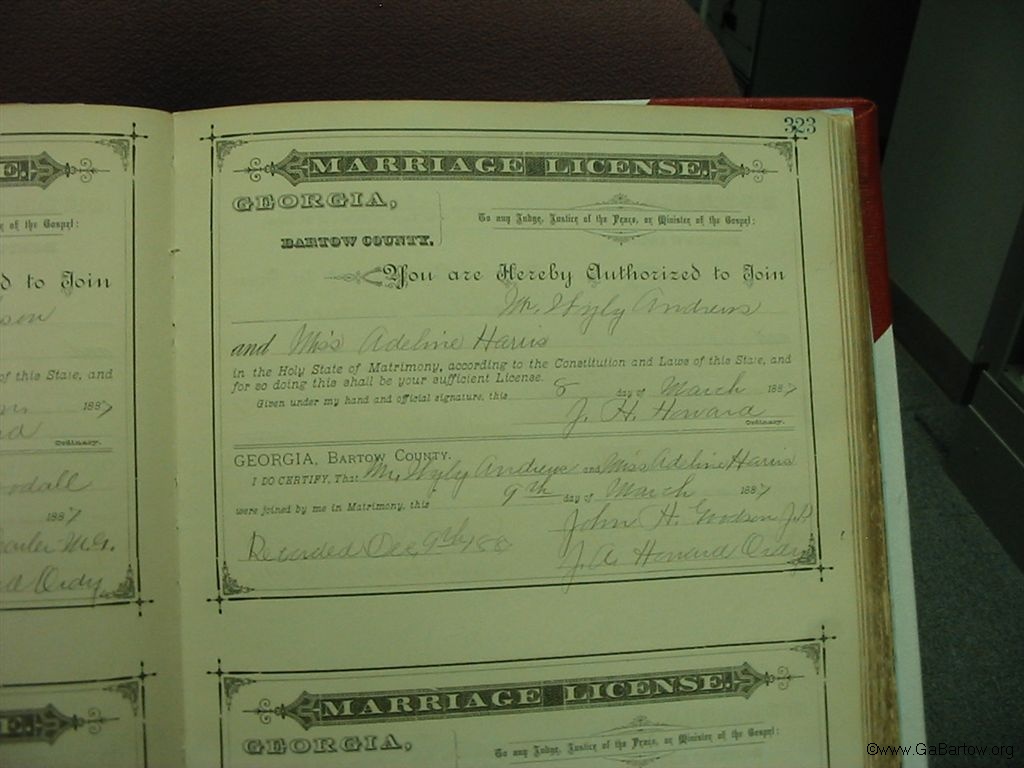 E.
of the Gospel:
d to Join
son
of this State, and
1887
Ordinary.
1887
Ordy
E.
323
MARRIAGE LICENSE.
GEORGIA,
BARTOW COUNTY.
To any Judge, Justice of the Peace, or Minister of the Gospel:
You are Hereby Authorized to Join
Mr. Wyly Andrews
and Miss Adeline Harris
in the Holy State of Matrimony, according to the Constitution and Laws of this State, and
for so doing this shall be your sufficient License.
Given under my hand and official signature, this 8 day of March 1887
J. H. Howard
Ordinary.
GEORGIA, BARTOW COUNTY.
I DO CERTIFY, That Mr. Wyly Andrews and Miss Adeline Harris
were joined by me in Matrimony, this 9th day of March 1887
John H. Goodson J.P.
Recorded Dec 9th 188
J. A. Howard Ordy
MARRIAGE LICENSE.
GEORGIA,
To any Judge, Justice of the Peace, or Minister of the Gospel:
©www.GaBartow.org